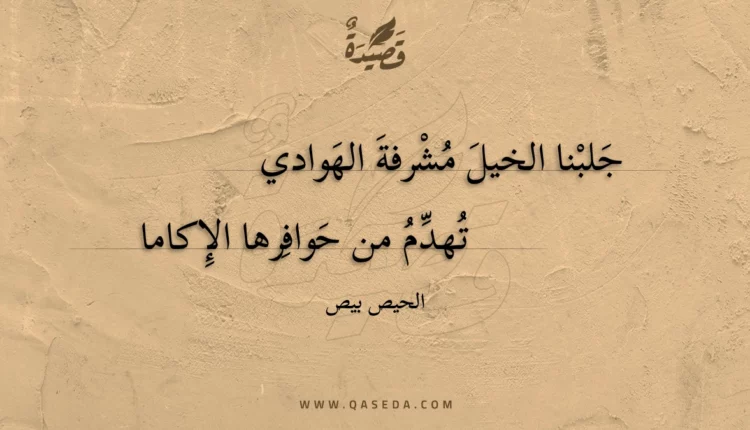 قَصِيدَةٌ
جَلبْنا الخيلَ مُشْرفةَ الهَوادي
تُهدِّمُ من حَوافِرِها الإِكاما
الحيص بيص
WWW.QASEDA.COM